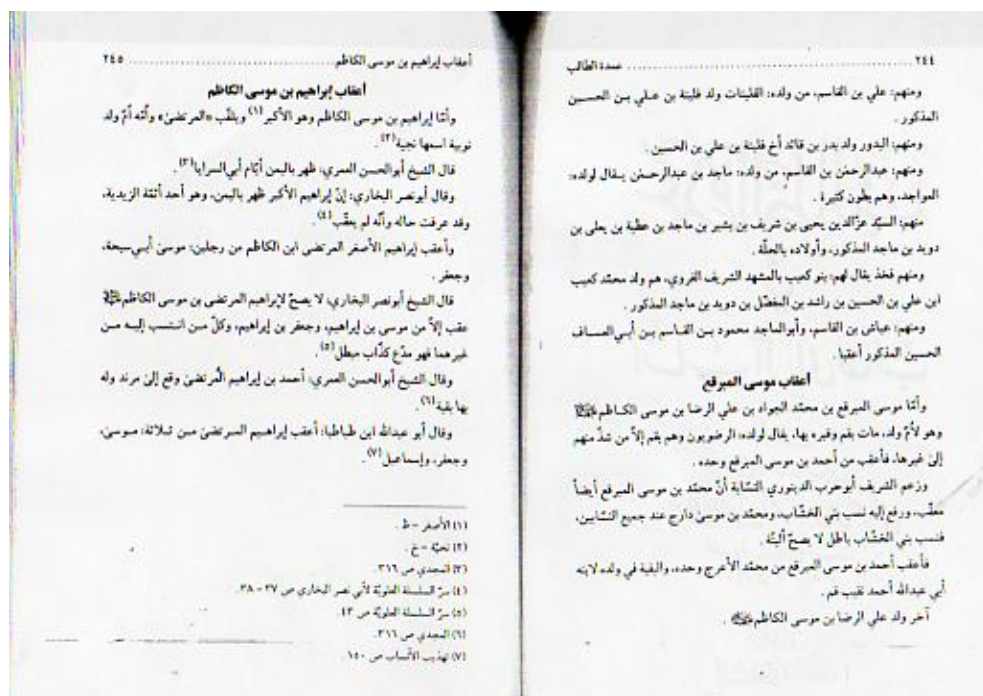 ٢٤٤ ........................................ عمدة الطالب
ومنهم: علي بن القاسم، من ولده: الفليتات ولد فليتة بن عـلي بـن الحسـين
المذكور .
ومنهم: البدور ولد بدر بن فائد أخ فليتة بن علي بن الحسين .
ومنهم: عبدالرحمٰن بن القاسم، من ولده: ماجد بن عبدالرحمٰن يـقال لولده:
المواجد، وهم بطون كثيرة .
منهم: السيّد عزّالدين يحيى بن شريف بن بشير بن ماجد بن عطية بن يعلى بن
دويد بن ماجد المذكور، وأولاده بالحلّة .
ومنهم فخذ يقال لهم: بنو كعيب بالمشهد الشريف الغروي، هم ولد محمّد كعيب
ابن علي بن الحسين بن راشد بن المفضّل بن دويد بن ماجد المذكور .
ومنهم: عياش بن القاسم، وأبوالماجد محمود بـن القـاسم بـن أبـي
الحسين المذكور أعقبا .
أعقاب موسى المبرقع
وأمّا موسى المبرقع بن محمّد الجواد بن علي الرضا بن موسى الكـاظم ﵇
وهو لأُمّ ولد، مات بقم وقبره بها، يقال لولده: الرضويون وهم بقم إلاّ من شذّ منهم
إلى غيرها، فأعقب من أحمد بن موسى المبرقع وحده .
وزعم الشريف أبوحرب الدينوري النسّابة أنّ محمّد بن موسى المبرقع أيضاً
معقّب، ورفع إليه نسب بني الخشّاب، ومحمّد بن موسىٰ دارج عند جميع النسّابين،
فنسب بني الخشّاب باطل لا يصحّ ألبتّة .
فأعقب أحمد بن موسى المبرقع من محمّد الأعرج وحده، والبقية في ولده لابنه
أبي عبدالله أحمد نقيب قم .
آخر ولد علي الرضا بن موسى الكاظم ﵇ .
أعقاب إبراهيم بن موسى الكاظم ........................................ ٢٤٥
أعقاب إبراهيم بن موسى الكاظم
وأمّا إبراهيم بن موسى الكاظم وهو الأكبر(١) ويلقّب «المرتضىٰ» وأُمّه أُمّ ولد
نوبية اسمها نجية(٢).
قال الشيخ أبوالحسن العمري: ظهر باليمن أيّام أبي السرايا(٣).
وقال أبونصر البخاري: إنّ إبراهيم الأكبر ظهر باليمن، وهو أحد أئمّة الزيدية،
وقد عرفت حاله وأنّه لم يعقّب(٤).
وأعقب إبراهيم الأصغر المرتضى ابن الكاظم من رجلين: موسىٰ أبـي سبحة،
وجعفر .
قال الشيخ أبونصر البخاري: لا يصحّ لإبراهيم المرتضى بن موسى الكاظم ﵇
عقب إلاّ من موسى بن إبراهيم، وجعفر بن إبراهيم، وكلّ مـن انـتسب إليـه مـن
غيرهما فهو مدّع كذّاب مبطل(٥).
وقال الشيخ أبوالحسن العمري: أحمد بن إبراهيم المُرتضىٰ وقع إلىٰ مرند وله
بها بقية(٦).
وقال أبو عبدالله ابن طباطبا: أعقب إبراهـيم المـرتضىٰ مـن ثـلاثة: مـوسىٰ،
وجعفر، وإسماعيل(٧).
(١) الأصغر - ظ .
(٢) تحيّة - خ .
(٣) المجدي ص ٣١٦.
(٤) سرّ السلسلة العلويّة لأبي نصر البخاري ص ٣٧ - ٣٨.
(٥) سرّ السلسلة العلويّة ص ٤٣.
(٦) المجدي ص ٣١٦.
(٧) تهذيب الأنساب ص ١٥٠.